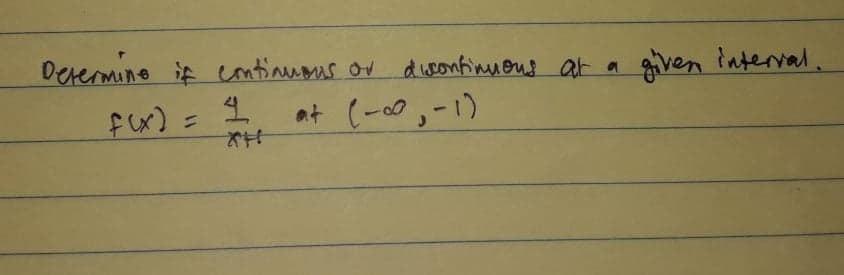 Determine if continuous or discontinuous at a given interval.
f(x) = 4/x+1 at (-∞, -1)